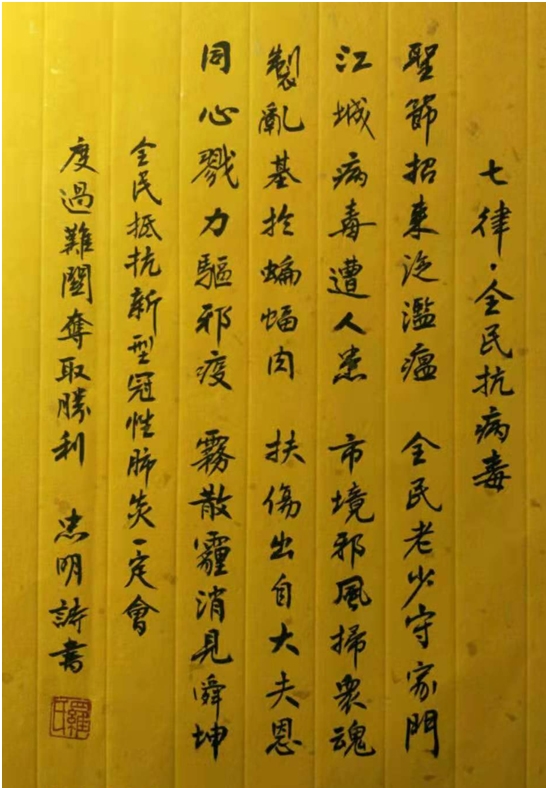 七律·全民抗病毒
聖節招來泛濫瘟 全民老少守家門
江城病毒遭人患 市境邪風掃眾魂
製亂基於蝙蝠肉 扶傷出自大夫恩
同心戮力驅邪疫 霧散霾消見舜坤
全民抵抗新型冠性肺炎一定會
度過難關奪取勝利 忠明詩書